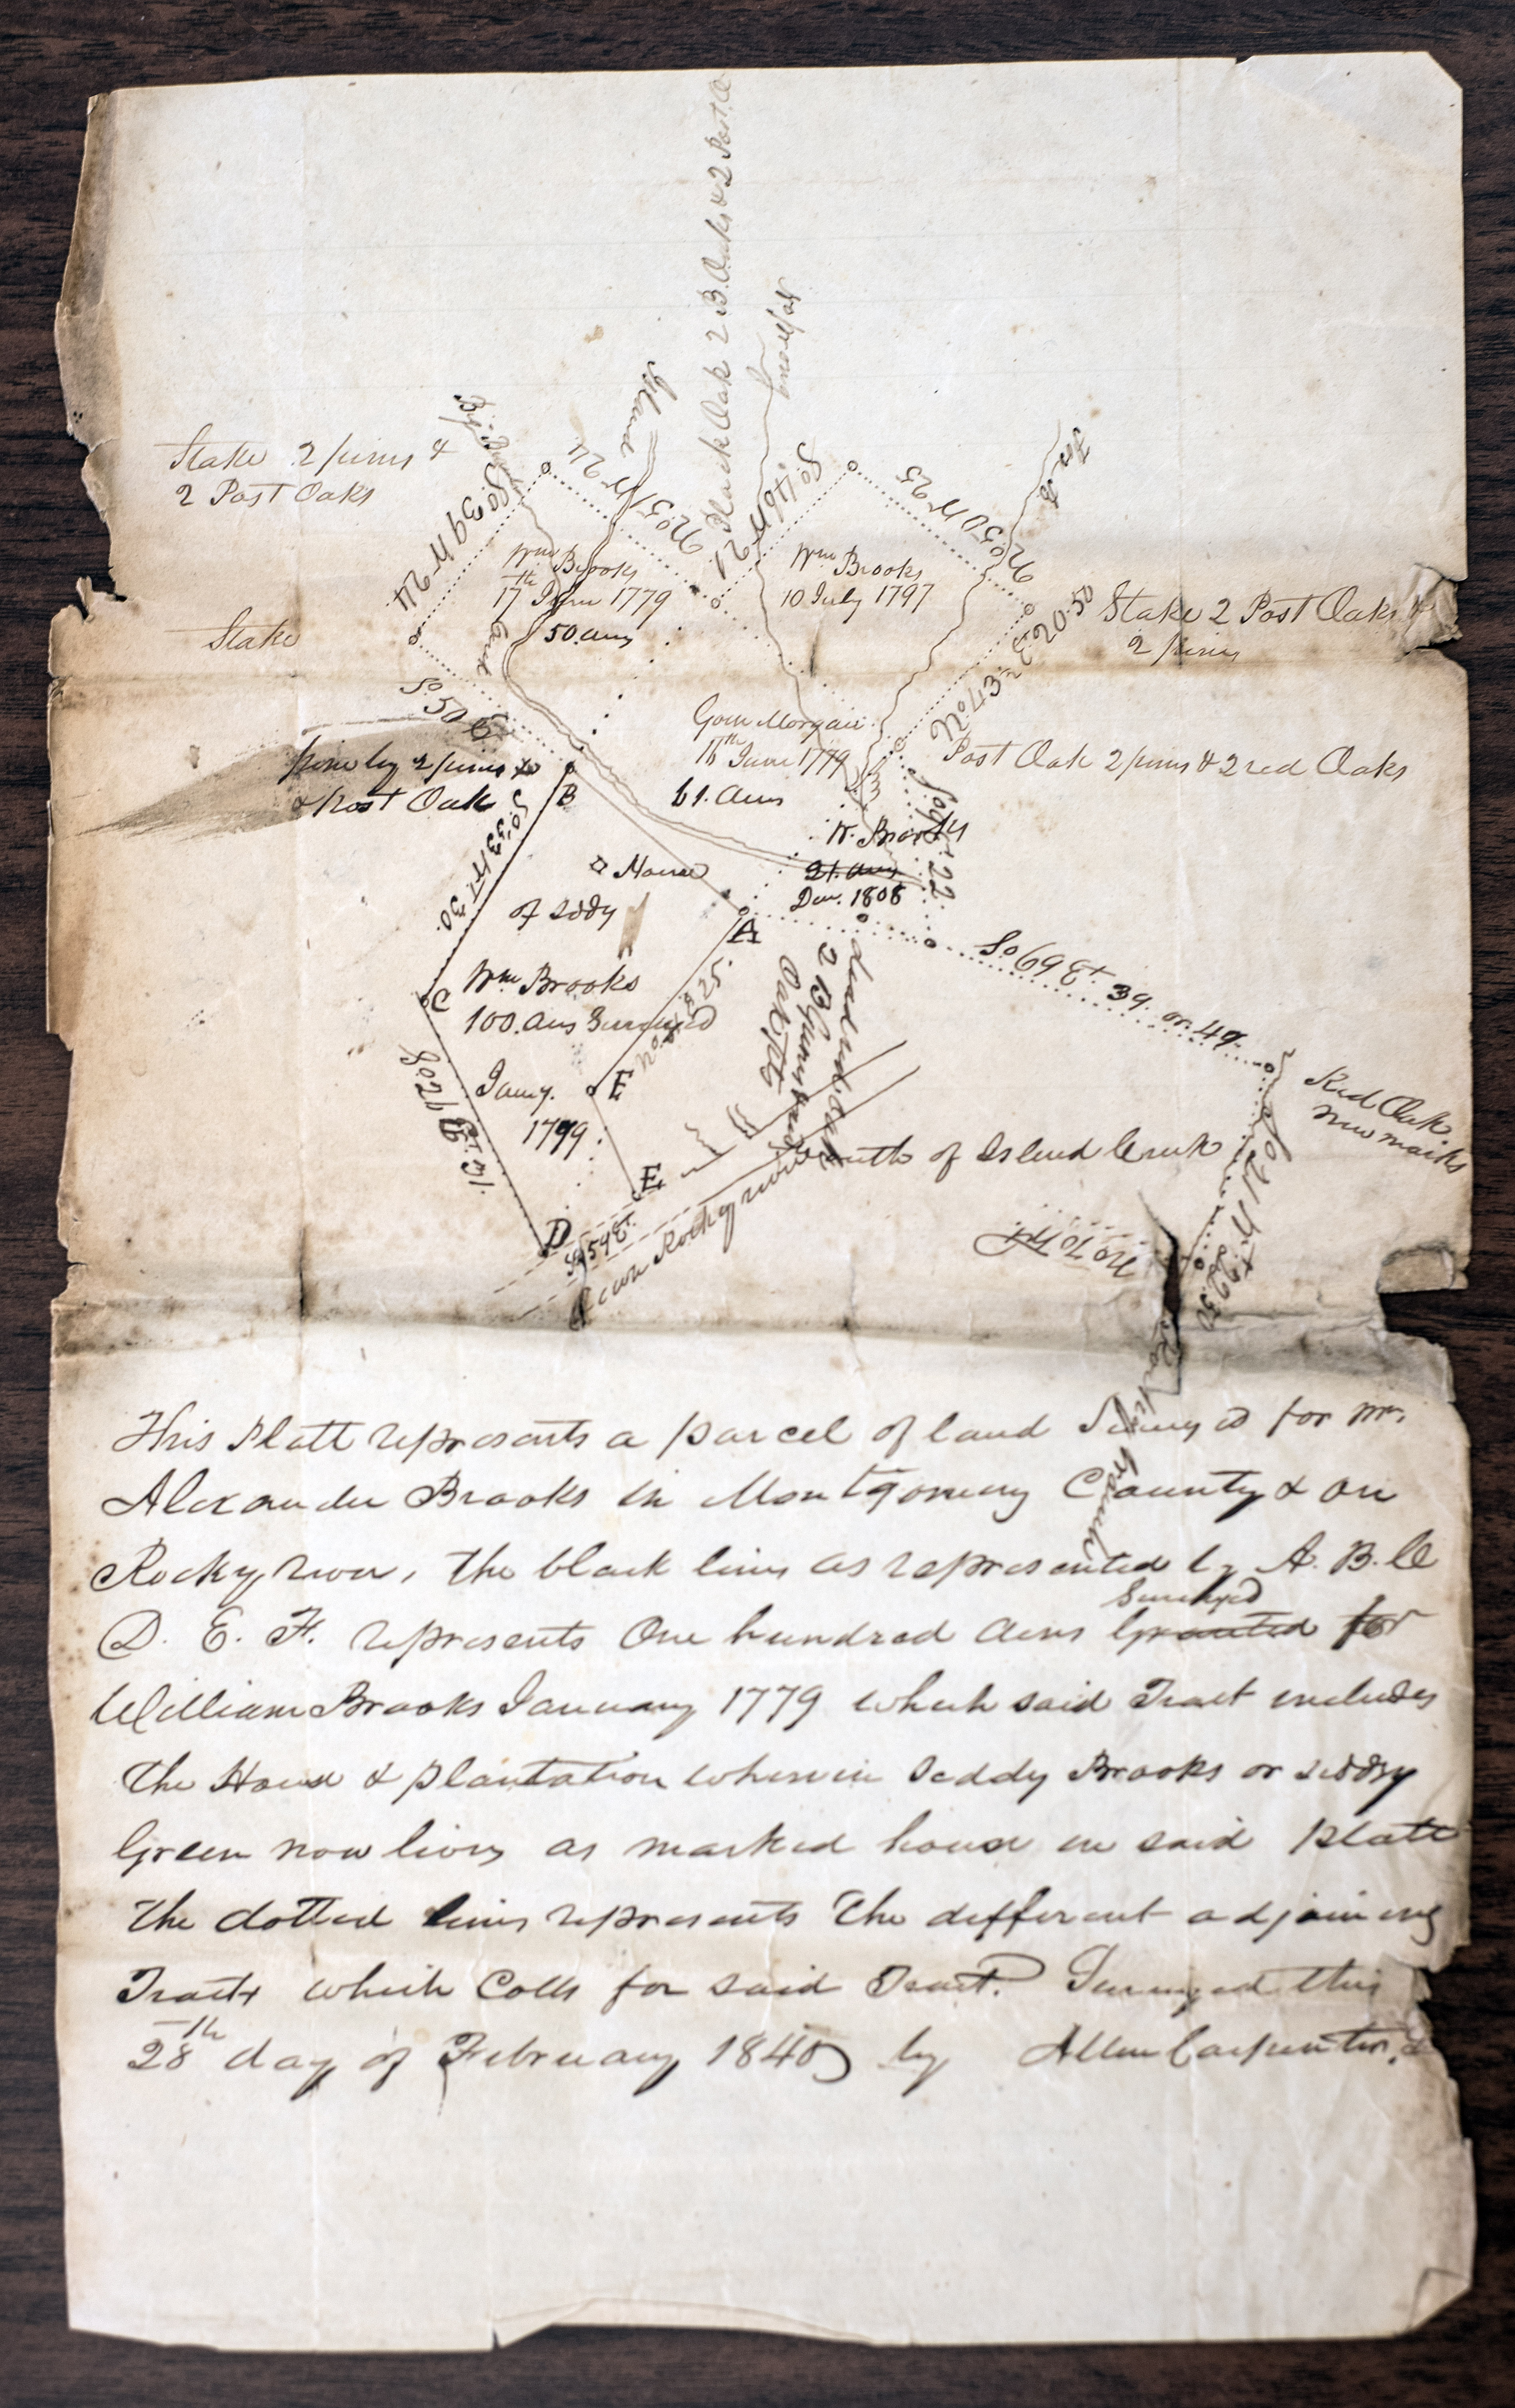 Black Oak 2 B. Oaks & 2 Post O
Small fork
Island
Stake 2 pines &
2 Post Oaks
So 39 Wt 24
No 51 Wt 24
So 40 Wt 21
No 50 Wt 25
Wm Brooks
17th June 1779
50. Acres
Wm Brooks
10 July 1797
Stake
Creek
No 43 ½ E 20.50
Stake 2 Post Oaks &
2 pines
So 50 E
Goin Morgan
16th June 1779
61. Acres
Post Oak 2 pines & 2 red Oaks
pine by 2 pines
& Post Oak
B
So. 33 Wt 30.
W. Brooks
21. Acres
Decr. 1808
22.
□ House
of Siddy
A
So 69 Et. 39. or. 47.
C
Wm Brooks
100. Acres Surveyed
Jany.
1799
25.
E
So. 21
Red Oak
New marks
So 21 Wt 22.50
mouth of Island Creek
E
D
So 54 Et.
Rocky river
This Platt represents a parcel of land Surveyed for Mr.
Alexander Brooks in Montgomery County & on
Rocky river, the black lines as represented by A. B. C
D. E. F. represents One hundred Acres Granted Surveyed for
William Brooks January 1779 which said Tract includes
the House & plantation wherein Seddy Brooks or Siddy
Green now lives as marked house in said platt
the dotted lines represents the different adjoining
Tracts which Calls for said Tract. Surveyed this
28th day of February 1840 by Allen Carpenter